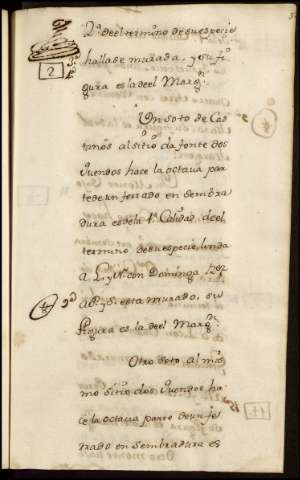 2ª de el termino de su especie
hallase murada, y su fi
gura es la de el Margⁿ.
2
Un soto de Cas
tanos al sitio da fonte dos
Vuendos hace la octava par
te de un ferrado en sembra
dura es de la 1ª Calidad de el
termino de su especie, linda
a L. y Nᵉ con Dominga
esta murado, su
figura es la de el Margⁿ.
Otro soto al mis
mo sitio dos Vuendos ha
ce la octava parte de un fe
rrado en sembradura es